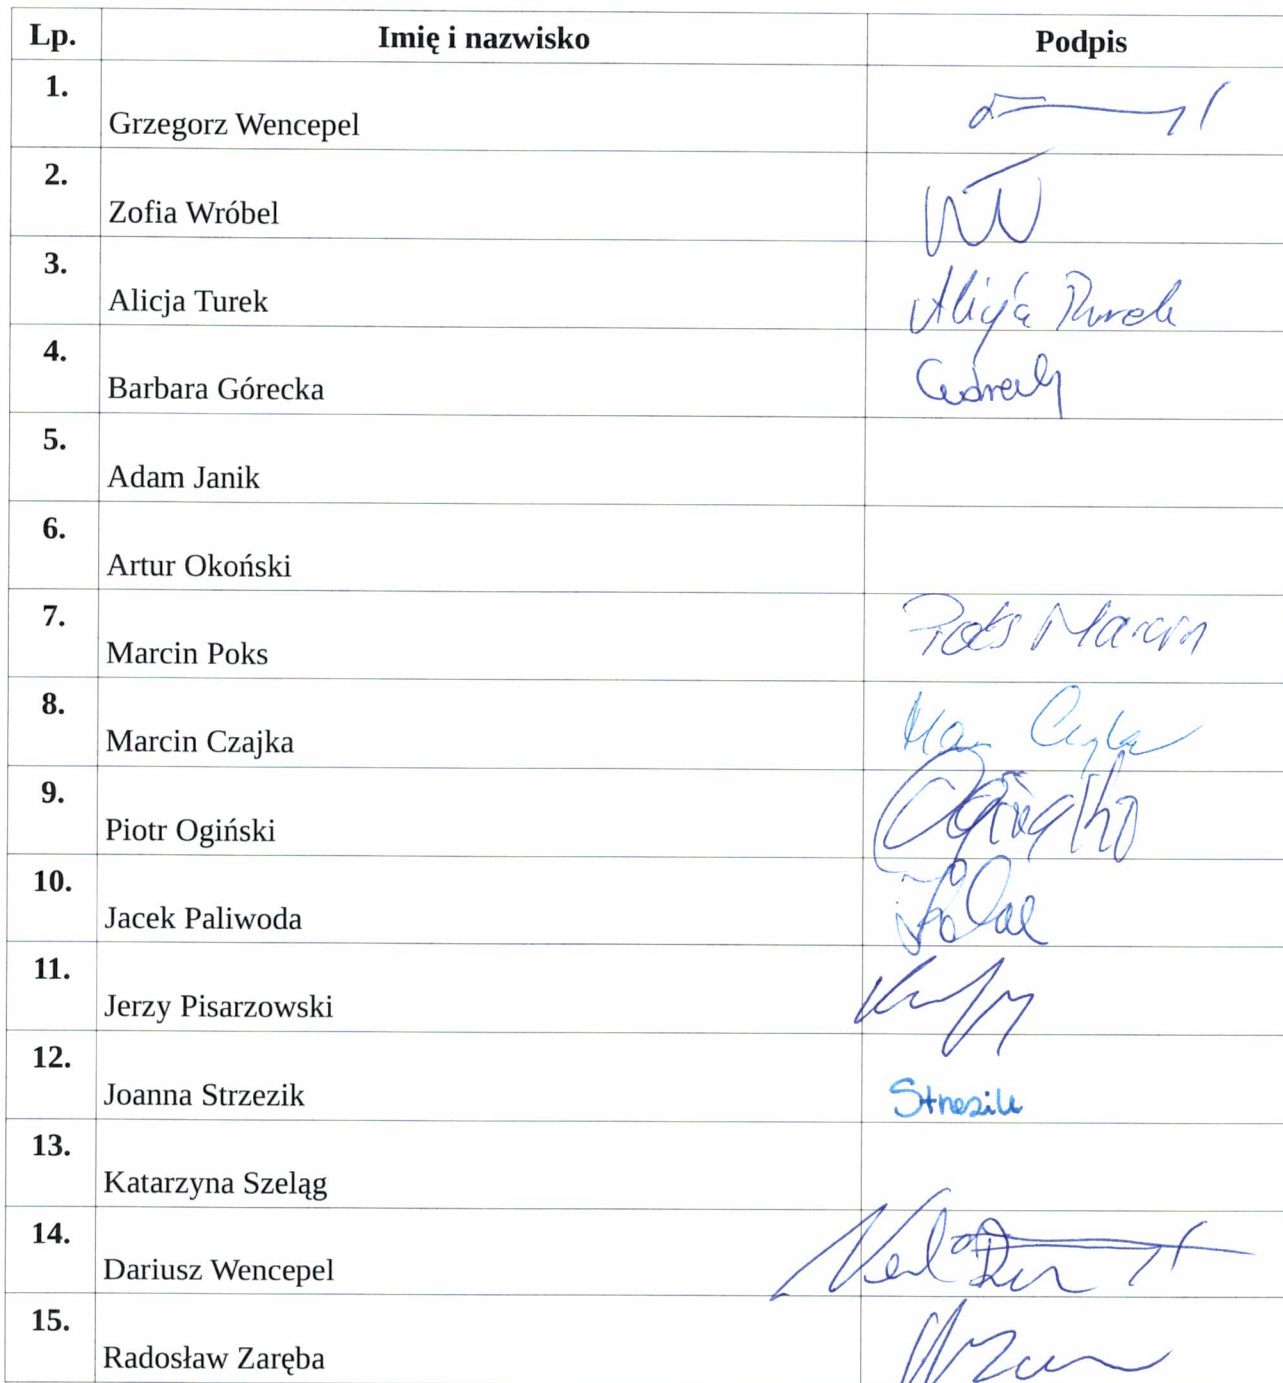 Lp. Imię i nazwisko Podpis
1. Grzegorz Wencepel
2. Zofia Wróbel
3. Alicja Turek Alicja Turek
4. Barbara Górecka
5. Adam Janik
6. Artur Okoński
7. Marcin Poks Poks Marcin
8. Marcin Czajka
9. Piotr Ogiński
10. Jacek Paliwoda
11. Jerzy Pisarzowski
12. Joanna Strzezik
13. Katarzyna Szeląg
14. Dariusz Wencepel
15. Radosław Zaręba